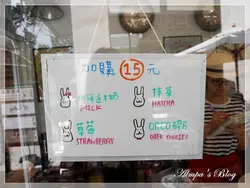 加購 15 元
牛奶
MILK
抹茶
MATCHA
草莓
STRAWBERRY
OREO碎片
OREO COOKIES
Ampa's Blog